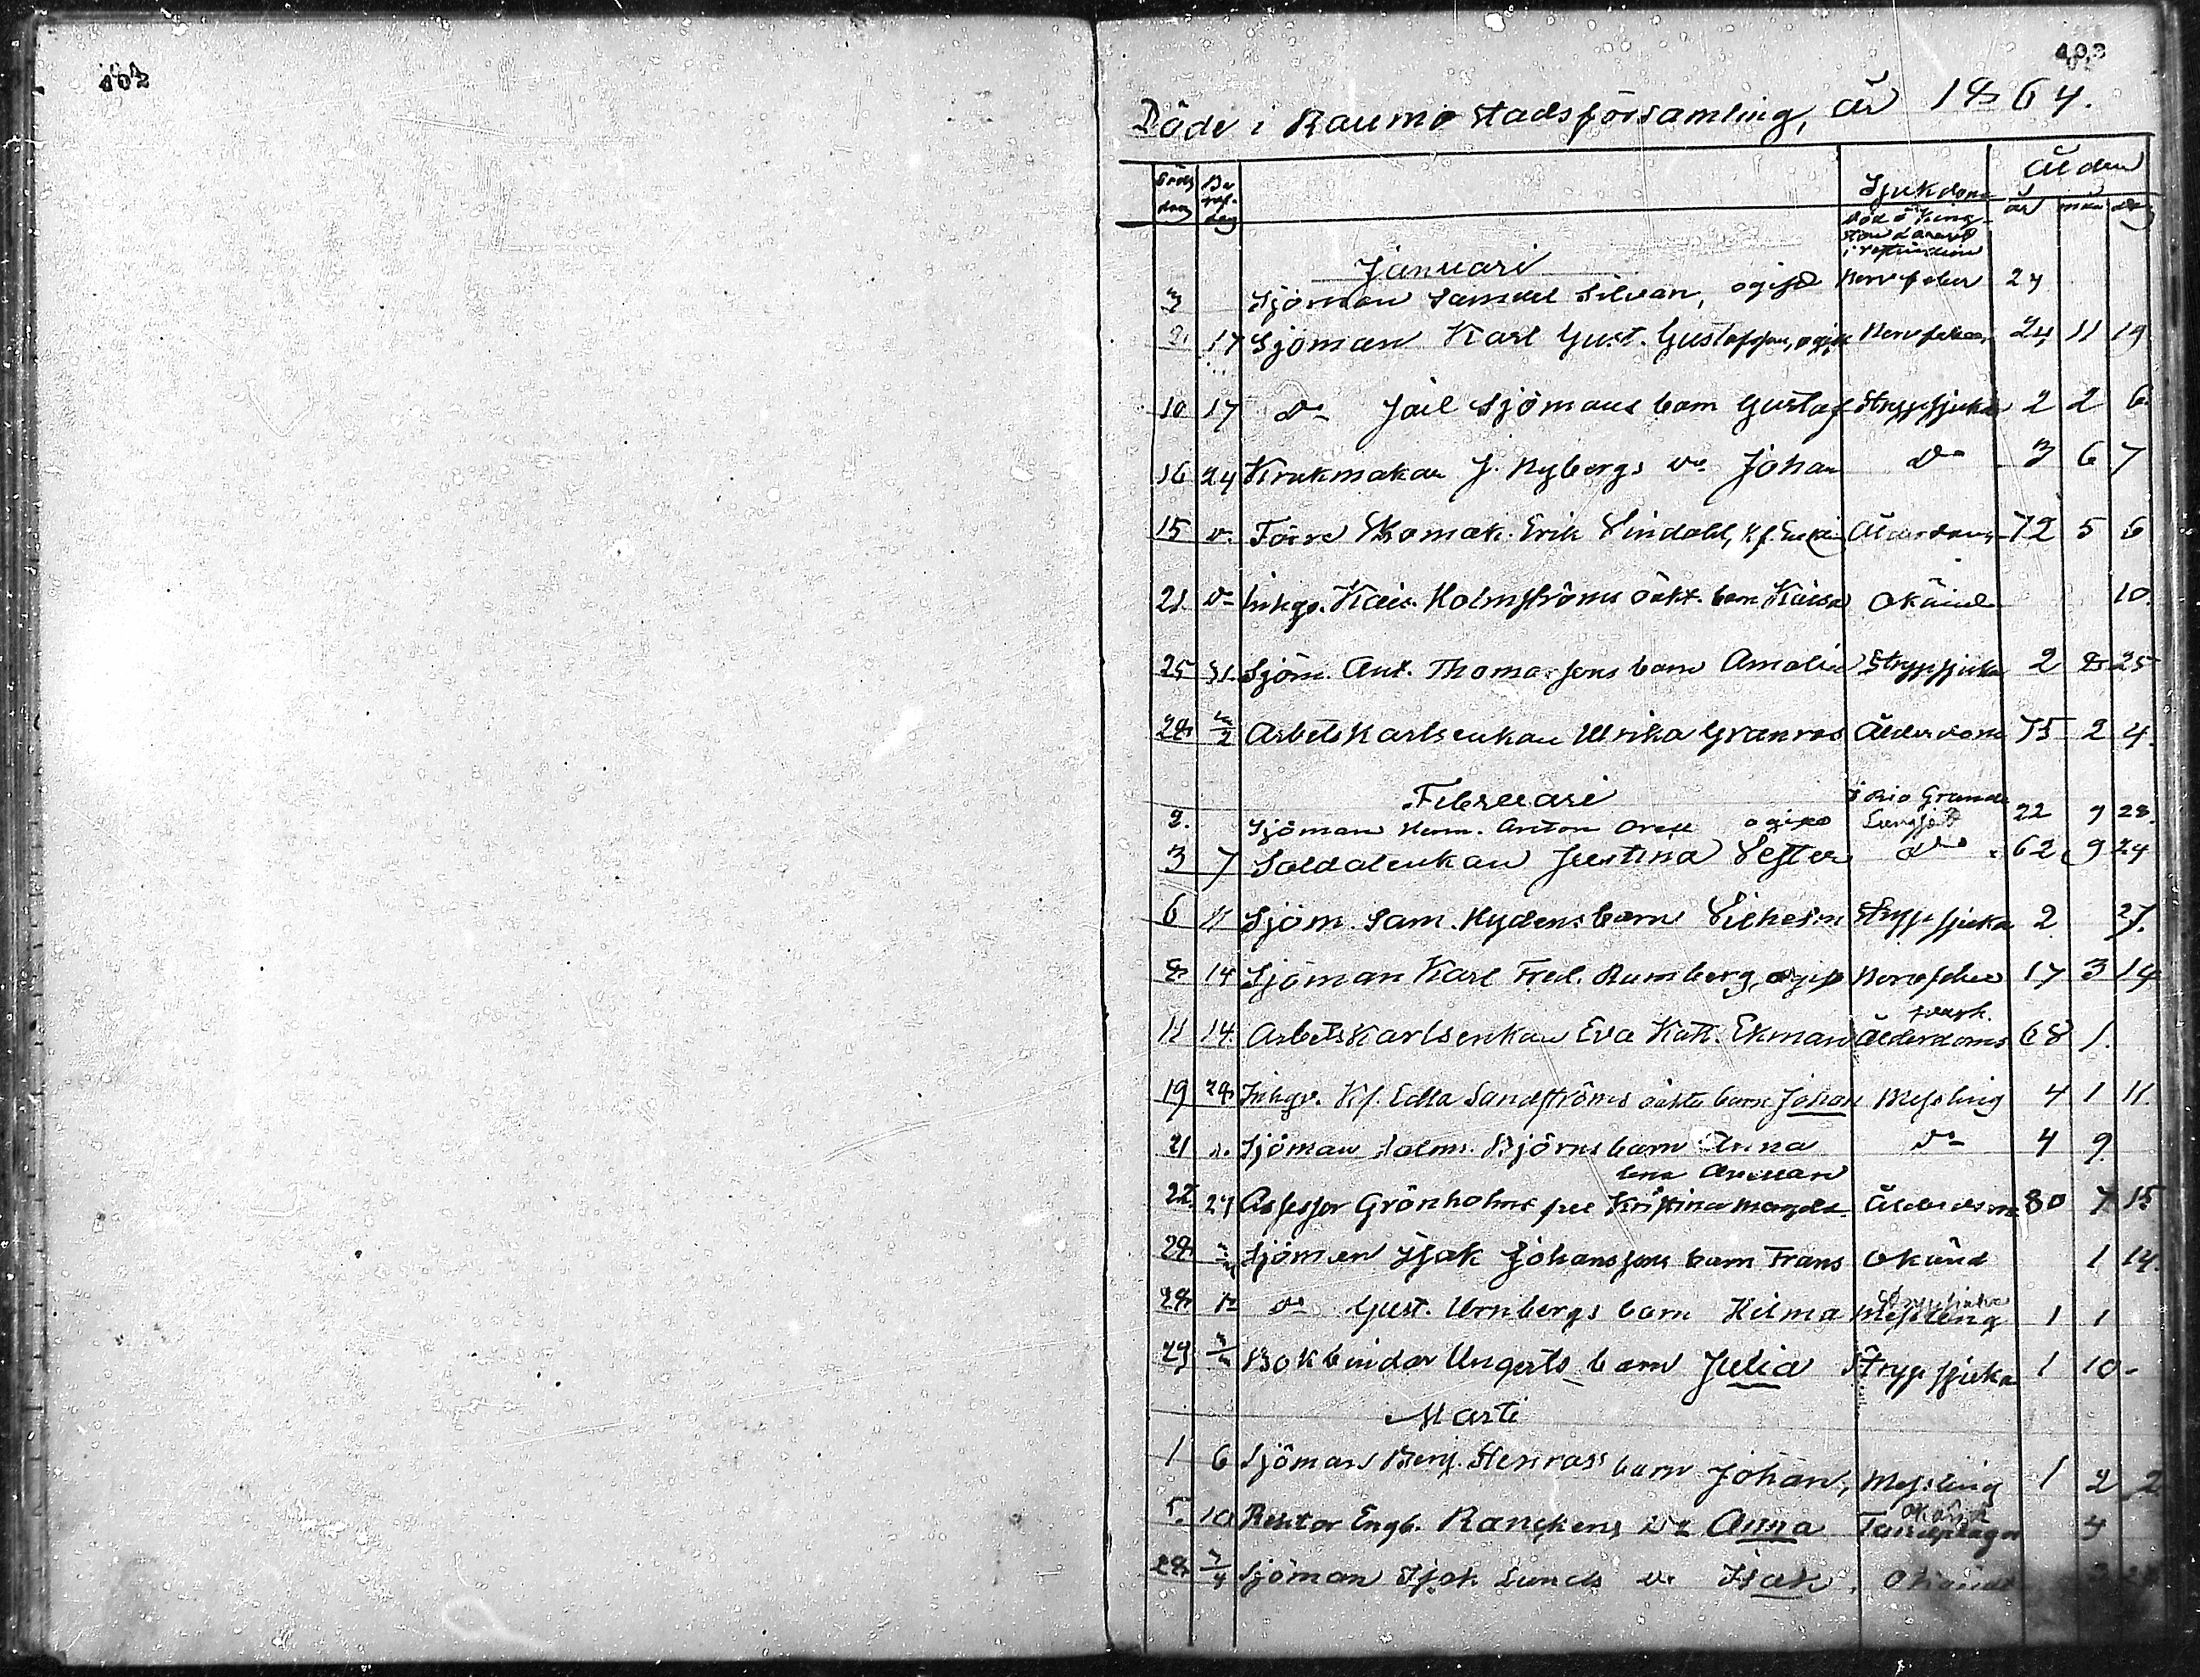 402
403
Döde i Raumo Stadsförsamling, år 1864.
Döds dag Be graf. dag Sjukdom Ålder
år mån dag
Januari
3 Sjöman Samuel Silvan, ogift Nervfeber 24
2. 17 Sjöman Karl Gust. Gustafsson, ogift Nervfeber 24 11 19
10 17 do Sjömans barn Gustaf Strypsjuka 2 2 6.
16 24 Krukmakar J. Nybergs do Johan do 3 6 7
15 do Förre Skomak. Erik Lindahl, Ålderdom 72 5 6
21. do Inhys. Holmströms oäkt. barn Okänd 10.
25 31. Sjöm. Ant. Thomassons barn Amalia Strypsjuka 2 8 25
28 2 Arbetskarlsenkan Ulrika Granroos Ålderdom 75 2 4.
Februari i Rio Grande
2. Sjöman Herm. Anton ogift Lungsot 22 9 28.
3 7 Soldatenkan Justina do 62 9 24
6 11 Sjöm. Sam. Nydens barn Vilhelm Strypsjuka 2 27.
8 14 Sjöman Karl Fred. Rumberg, ogift Nervfeber 17 3 14
11 14. Arbetskarlsenkan Eva Kat. Ekman Ålderdoms 68 1.
19 28 Inhys. Edla Sandströms oäkta barn Johan Messling 4 1 11.
21 do Sjöman Salom. Björns barn Anna do 4 9
22. 29 Assessor Grönholms fru Kristina Magda. Ålderdom 80 7 15
28 Sjöman Isak Johanssons barn Frans Okänd 1 14.
28 do do Gust. Urnbergs barn Hilma Messling 1 1
29 Bokbindar Ungerts barn Julia Strypsjuka 1 10 -
Marti
1 6 Sjöman Benj. Stenroos barn Johan, Messling 1 2 2
5. 10 Rektor Engb. Ranckens do Anna Okänd 4
28 3/4 Sjöman Isak Lunds do Isak, Okänd